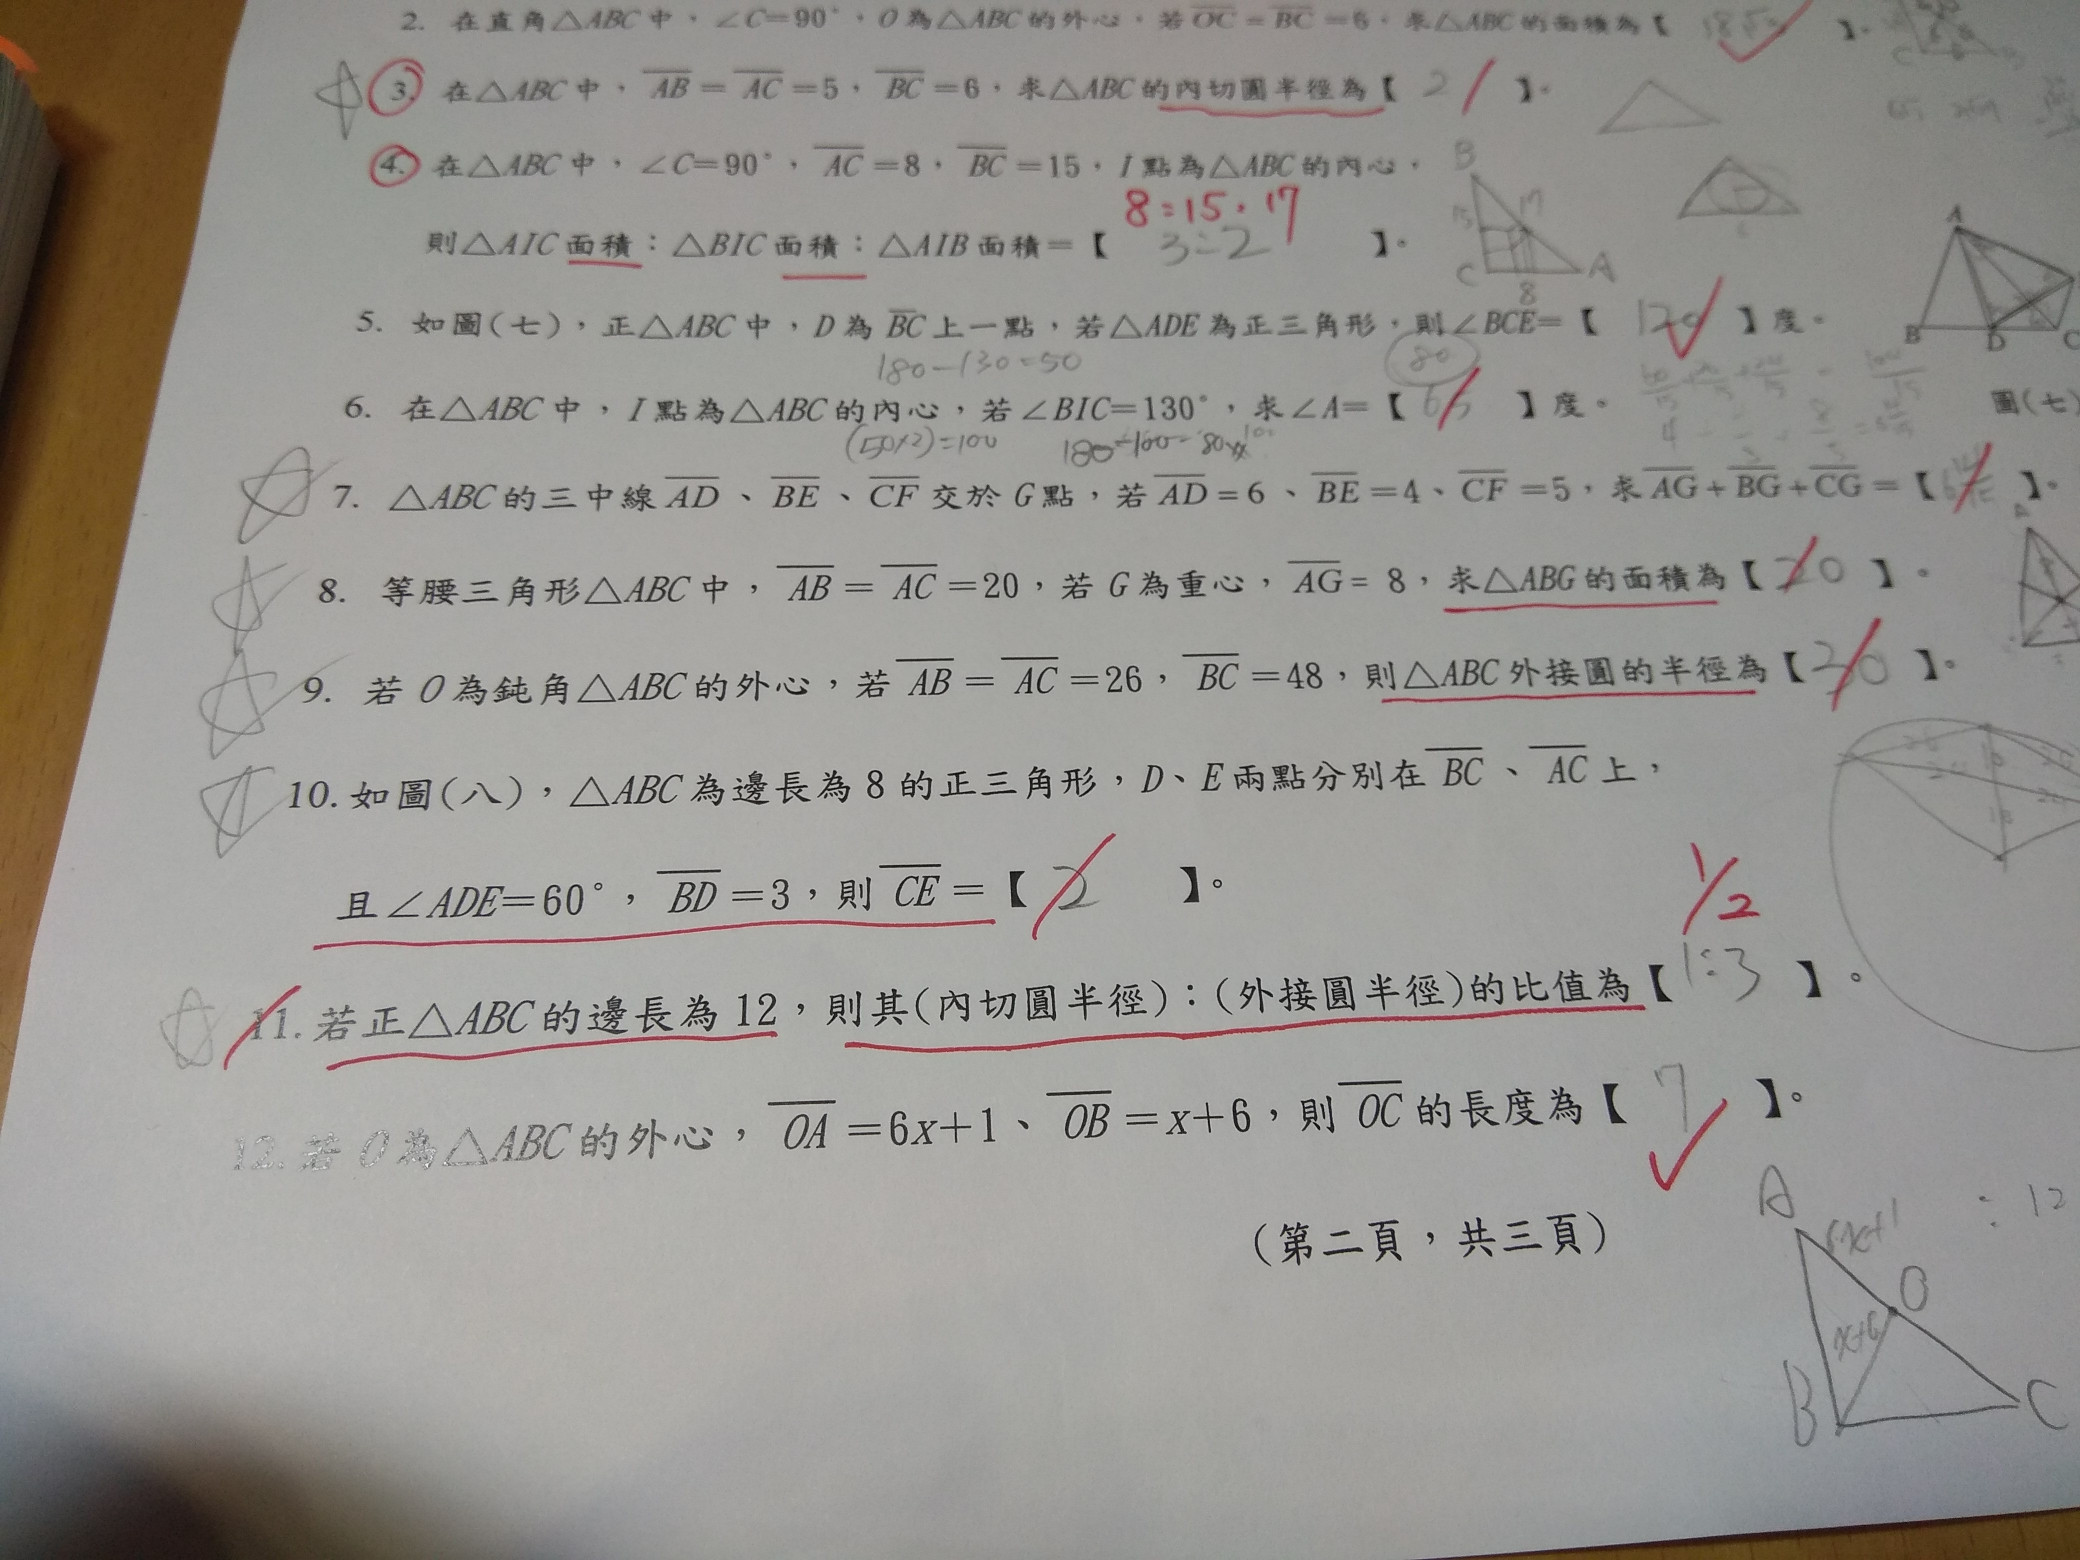 2. 在直角△ABC中，∠C=90°，O為△ABC的外心，若OC=BC=6，求△ABC的面積為【 】。
3. 在△ABC中，AB=AC=5，BC=6，求△ABC的內切圓半徑為【 2 】。
4. 在△ABC中，∠C=90°，AC=8，BC=15，I點為△ABC的內心，
8:15:17
則△AIC面積：△BIC面積：△AIB面積=【 3:2 】。
B
15
17
C
A
8
5. 如圖(七)，正△ABC中，D為BC上一點，若△ADE為正三角形，則∠BCE=【 120 】度。
A
B
D
C
圖(七)
180-130=50
80
6. 在△ABC中，I點為△ABC的內心，若∠BIC=130°，求∠A=【 65 】度。
(50×2)=100
180-100=80
7. △ABC的三中線AD、BE、CF交於G點，若AD=6、BE=4、CF=5，求AG+BG+CG=【 】。
8. 等腰三角形△ABC中，AB=AC=20，若G為重心，AG=8，求△ABG的面積為【 20 】。
9. 若O為鈍角△ABC的外心，若AB=AC=26，BC=48，則△ABC外接圓的半徑為【 30 】。
10. 如圖(八)，△ABC為邊長為8的正三角形，D、E兩點分別在BC、AC上，
且∠ADE=60°，BD=3，則CE=【 2 】。
1/2
11. 若正△ABC的邊長為12，則其(內切圓半徑)：(外接圓半徑)的比值為【 1:3 】。
12. 若O為△ABC的外心，OA=6x+1、OB=x+6，則OC的長度為【 7 】。
(第二頁，共三頁)
A
6x+1
: 12
O
x+6
B
C